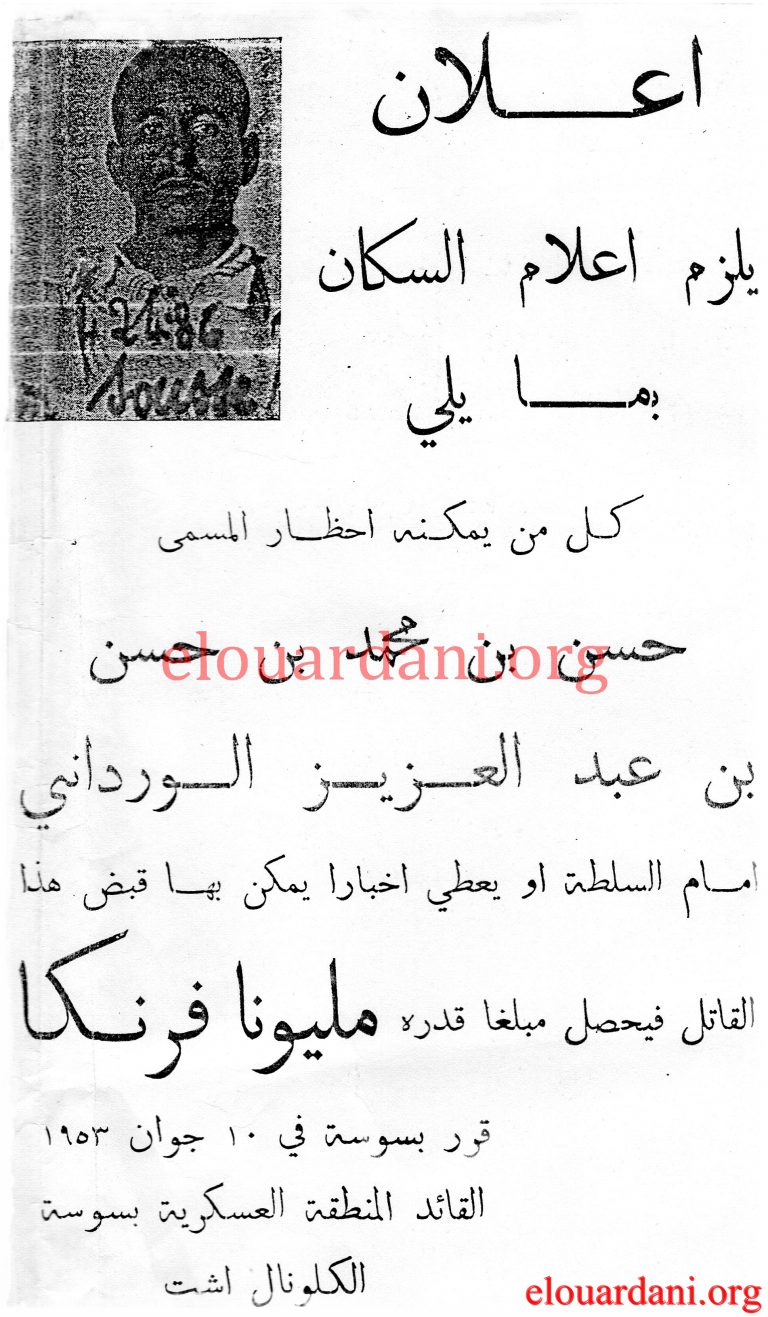 اعلان
يلزم اعلام السكان
بما يلي
كل من يمكنه احظار المسمى
حسن بن محمد بن حسن
بن عبد العزيز الورداني
امام السلطة او يعطي اخبارا يمكن بها قبض هذا
القاتل فيحصل مبلغا قدره مليونا فرنكا
قرر بسوسة في ١٠ جوان ١٩٥٣
القائد المنطقة العسكرية بسوسة
الكلونال اشت
2486
Sousse
elouardani.org
elouardani.org